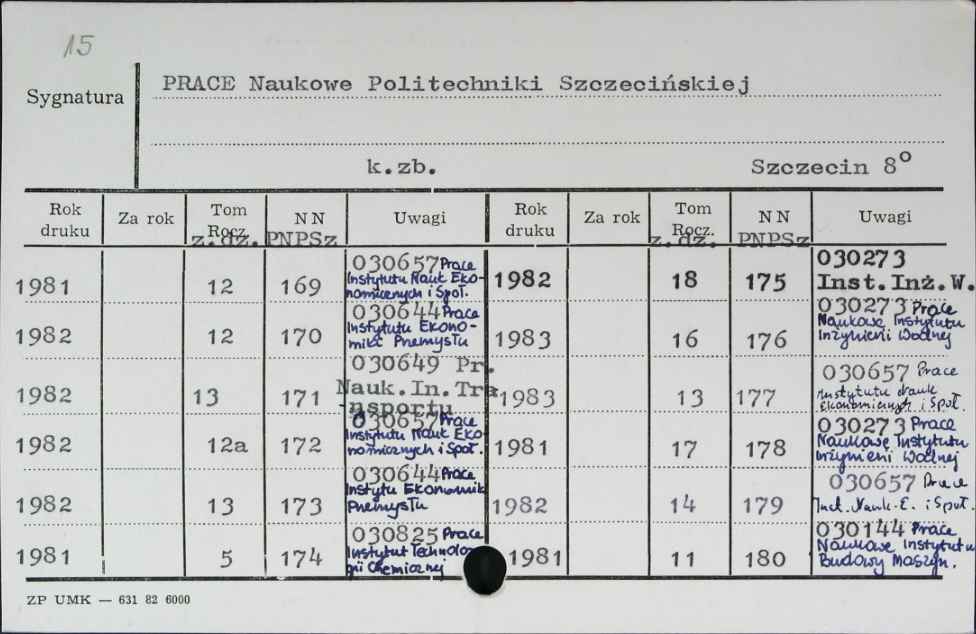 15
Sygnatura
PRACE Naukowe Politechniki Szczecińskiej
k.zb. Szczecin 8°
Rok druku Za rok Tom Rocz. z.dz. NN PNPSz Uwagi Rok druku Za rok Tom Rocz. z.dz. NN PNPSz Uwagi
1981 12 169 030657 Prace
Instytutu Nauk Eko-
nomicznych i Społ.
1982 18 175 030273
Inst.Inż.W.
1982 12 170 030644 Prace
Instytutu Ekono-
miki Przemysłu
1983 16 176 030273 Prace
Naukowe Instytutu
Inżynierii Wodnej
1982 13 171 030649 Pr.
Nauk.In.Tra
-nsportu
1983 13 177 030657 Prace
Instytutu Nauk
Ekonomicznych i Społ.
1982 12a 172 030657 Prace
Instytutu Nauk Eko-
nomicznych i Społ.
1981 17 178 030273 Prace
Naukowe Instytutu
Inżynierii Wodnej
1982 13 173 030644 Prace
Instytu Ekonomik
Przemysłu
1982 14 179 030657 Prace
Inst. Nauk. E. i Społ.
1981 5 174 030825 Prace
Instytut Technolo-
gii Chemicznej
1981 11 180 030144 Prace
Naukowe Instytutu
Budowy Maszyn.
ZP UMK — 631 82 6000